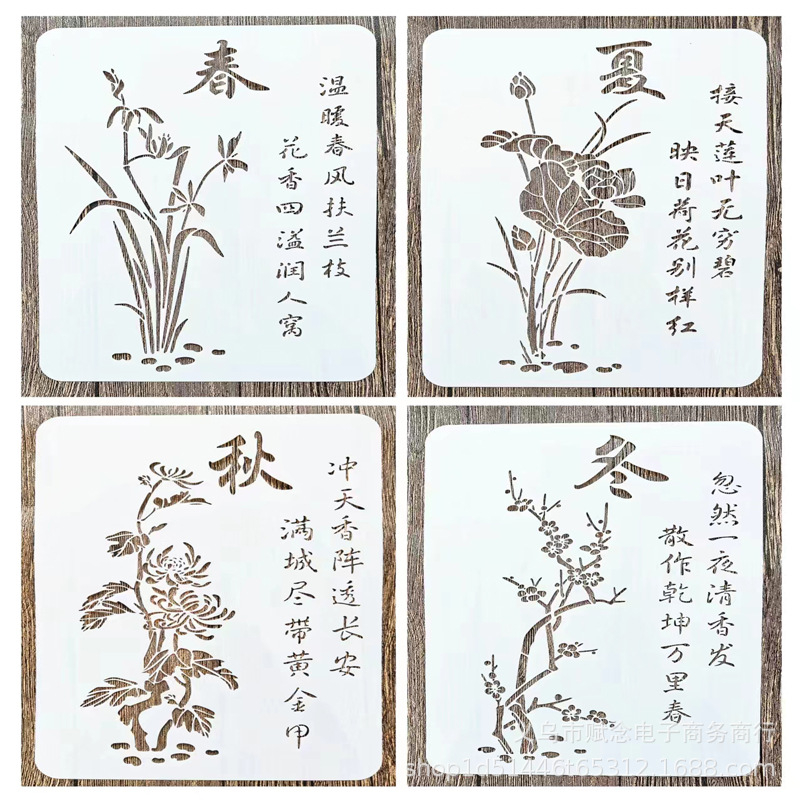 春
温暖春风扶兰枝
花香四溢润人窝
夏
接天莲叶无穷碧
映日荷花别样红
秋
冲天香阵透长安
满城尽带黄金甲
冬
忽然一夜清香发
散作乾坤万里春
义乌市赋念电子商务商行
shop1d51446t65312.1688.com